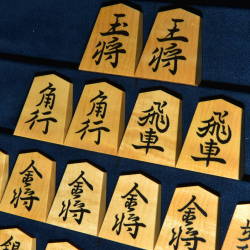 玉将 王将
角行 角行 飛車 飛車
金将 金将 金将 金将
銀